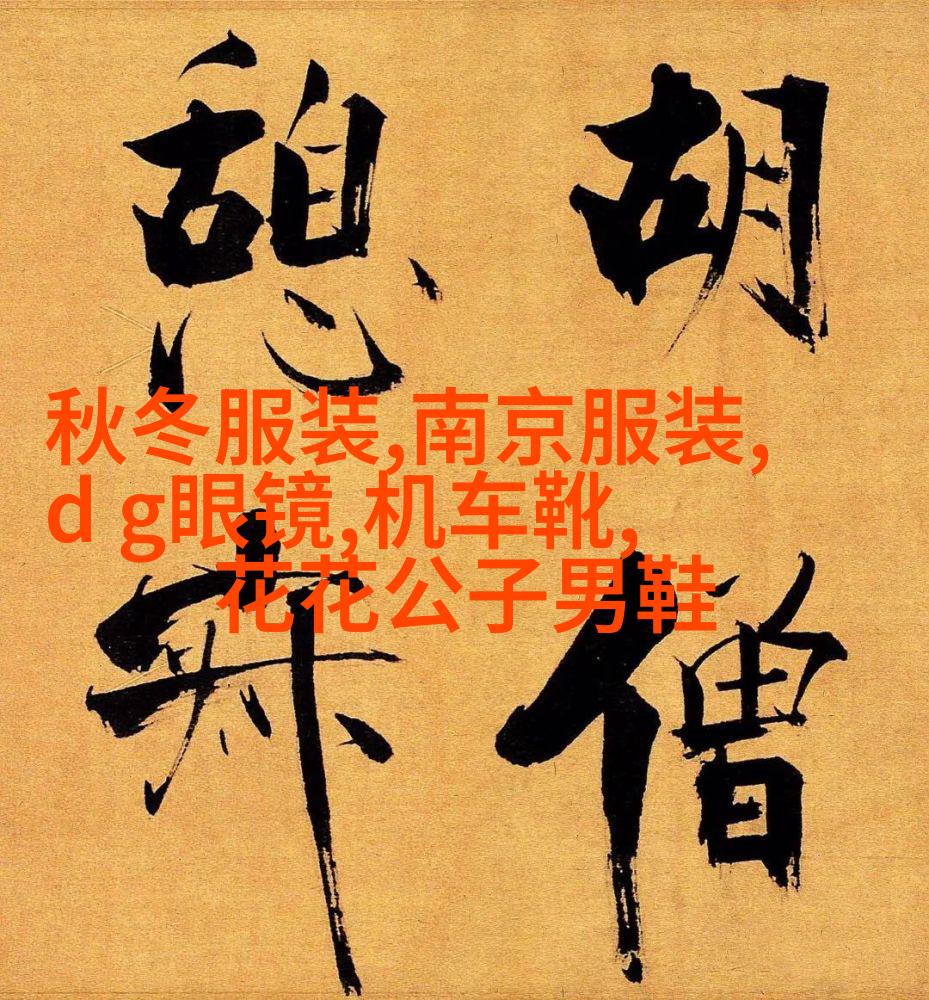 胡僧
憩寂
秋冬服装,南京服装,
d g眼镜,机车靴,
花花公子男鞋